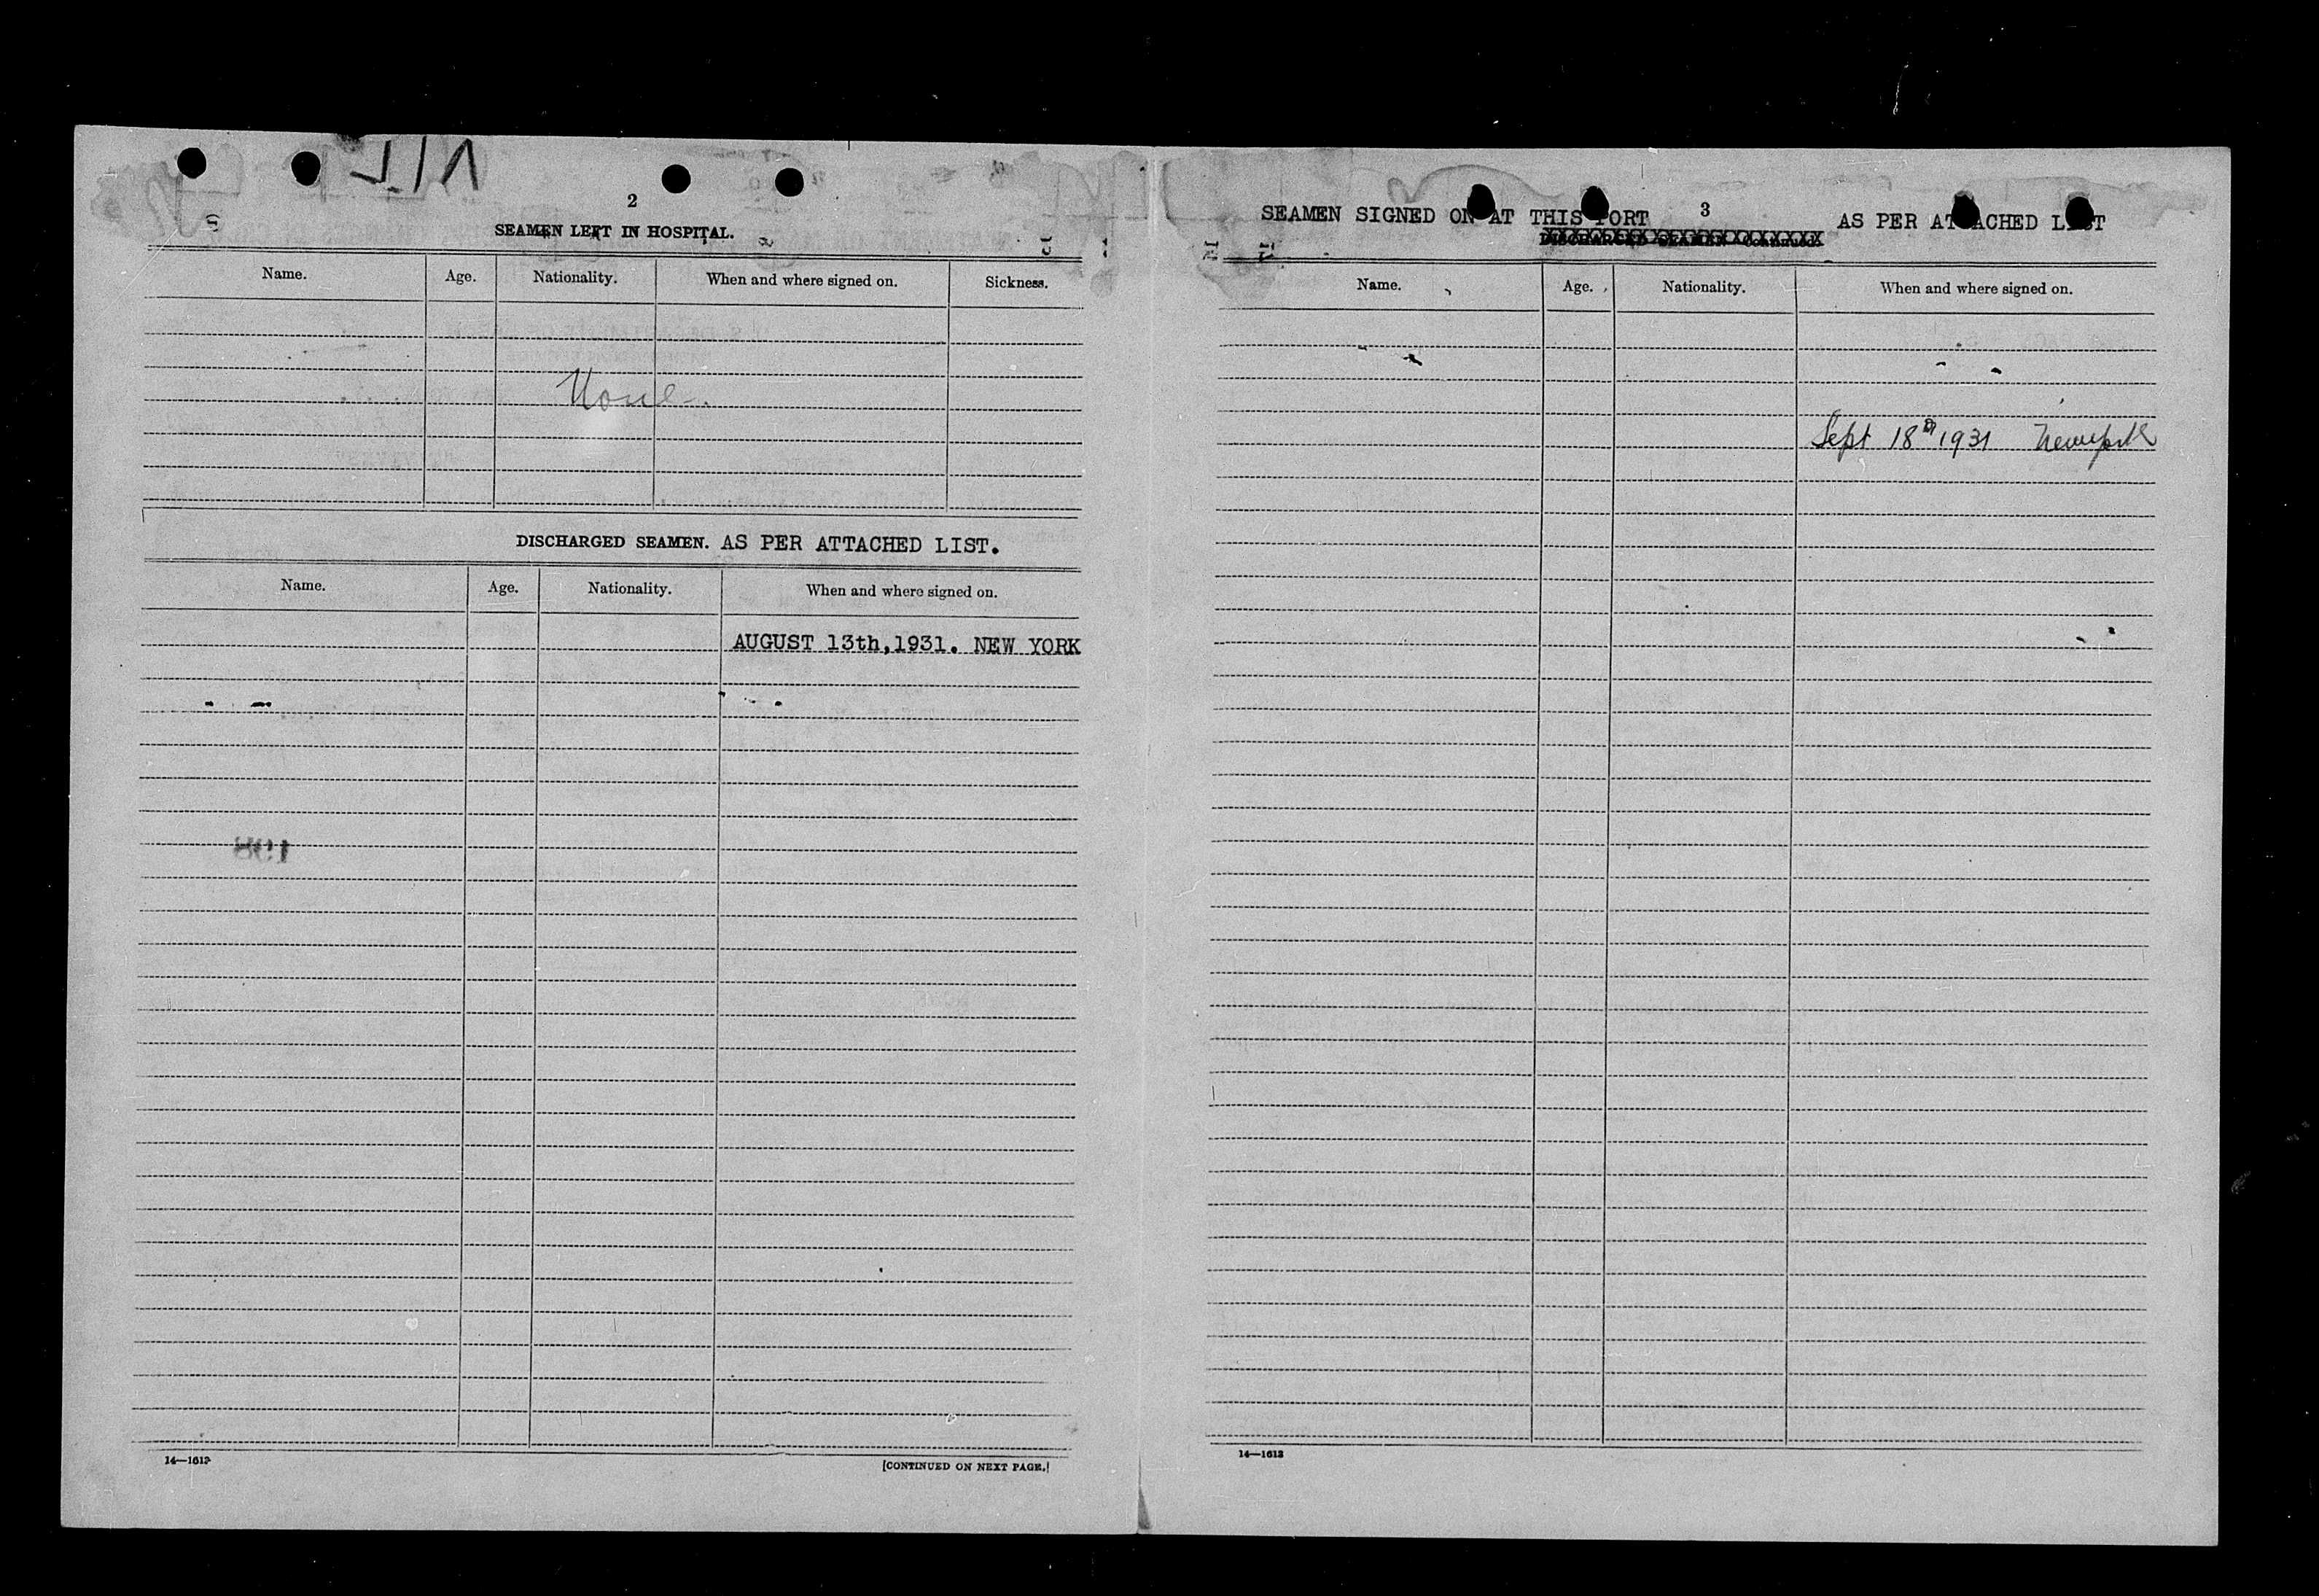 2
SEAMEN LEFT IN HOSPITAL.
Name. Age. Nationality. When and where signed on. Sickness.
None.
DISCHARGED SEAMEN. AS PER ATTACHED LIST.
Name. Age. Nationality. When and where signed on.
AUGUST 13th,1931. NEW YORK
198
14—1612
[CONTINUED ON NEXT PAGE.]
3
SEAMEN SIGNED ON AT THIS PORT AS PER ATTACHED LIST
DISCHARGED SEAMEN—Continued.
Name. Age. Nationality. When and where signed on.
Sept 18th 1931 New York
14—1612